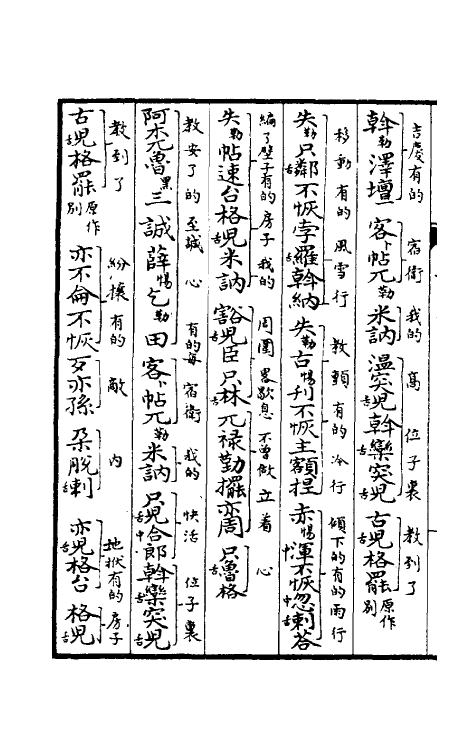 吉慶有的 宿衛 我的 高 位子裏 教到了
斡勒澤壇 客卜帖兀勒 米訥 溫突舌兒斡欒突兒 古舌兒格罷原作别
移動有的 風雪行 教顫有的 冷行 傾下的有的雨行
失勒只舌鄰不恢孛舌羅斡納 失勒古惕刊不恢主額捏 赤惕中渾不恢中忽舌剌荅
編了壁子有的房子 我的 周圍畧歇息 不曾做 立着 心
失勒帖速台格舌兒米訥 豁舌兒臣只林兀祿勤擺亦周 只舌魯格
教安了的 至誠 心 有的每宿衛 我的 快活 位子裏
阿木兀魯黑三 誠薛惕乞勒田 客卜帖兀勒米訥 只舌兒中合郎斡欒突舌兒
教到了 紛攘有的 敵 內 地狀有的房子
古舌兒格罷原作别 亦不倫不恢歹亦孫 朶脫舌剌 亦舌兒格台 格舌兒